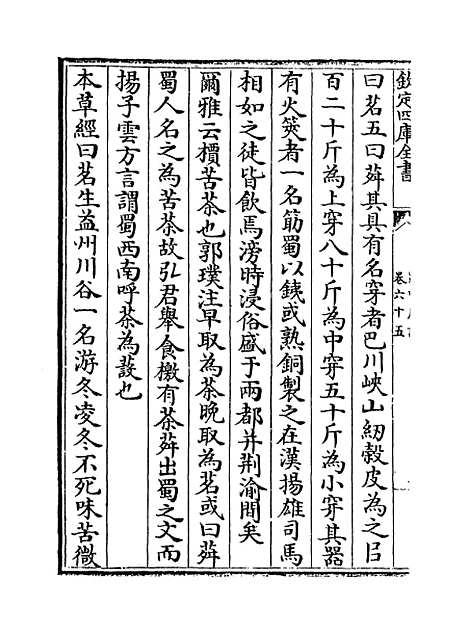 欽定四庫全書
卷六十五
曰茗五曰荈其具有名穿者巴川峽山紉穀皮為之㠯
百二十斤為上穿八十斤為中穿五十斤為小穿其器
有火筴者一名筯蜀以鐵或熟銅製之在漢揚雄司馬
相如之徒皆飲焉滂時浸俗盛于兩都并荆渝間矣
爾雅云檟苦荼也郭璞注早取為茶晚取為茗或曰荈
蜀人名之為苦荼故弘君舉食檄有茶荈出蜀之文而
揚子雲方言謂蜀西南呼荼為蔎也
本草經曰茗生益州川谷一名游冬凌冬不死味苦微